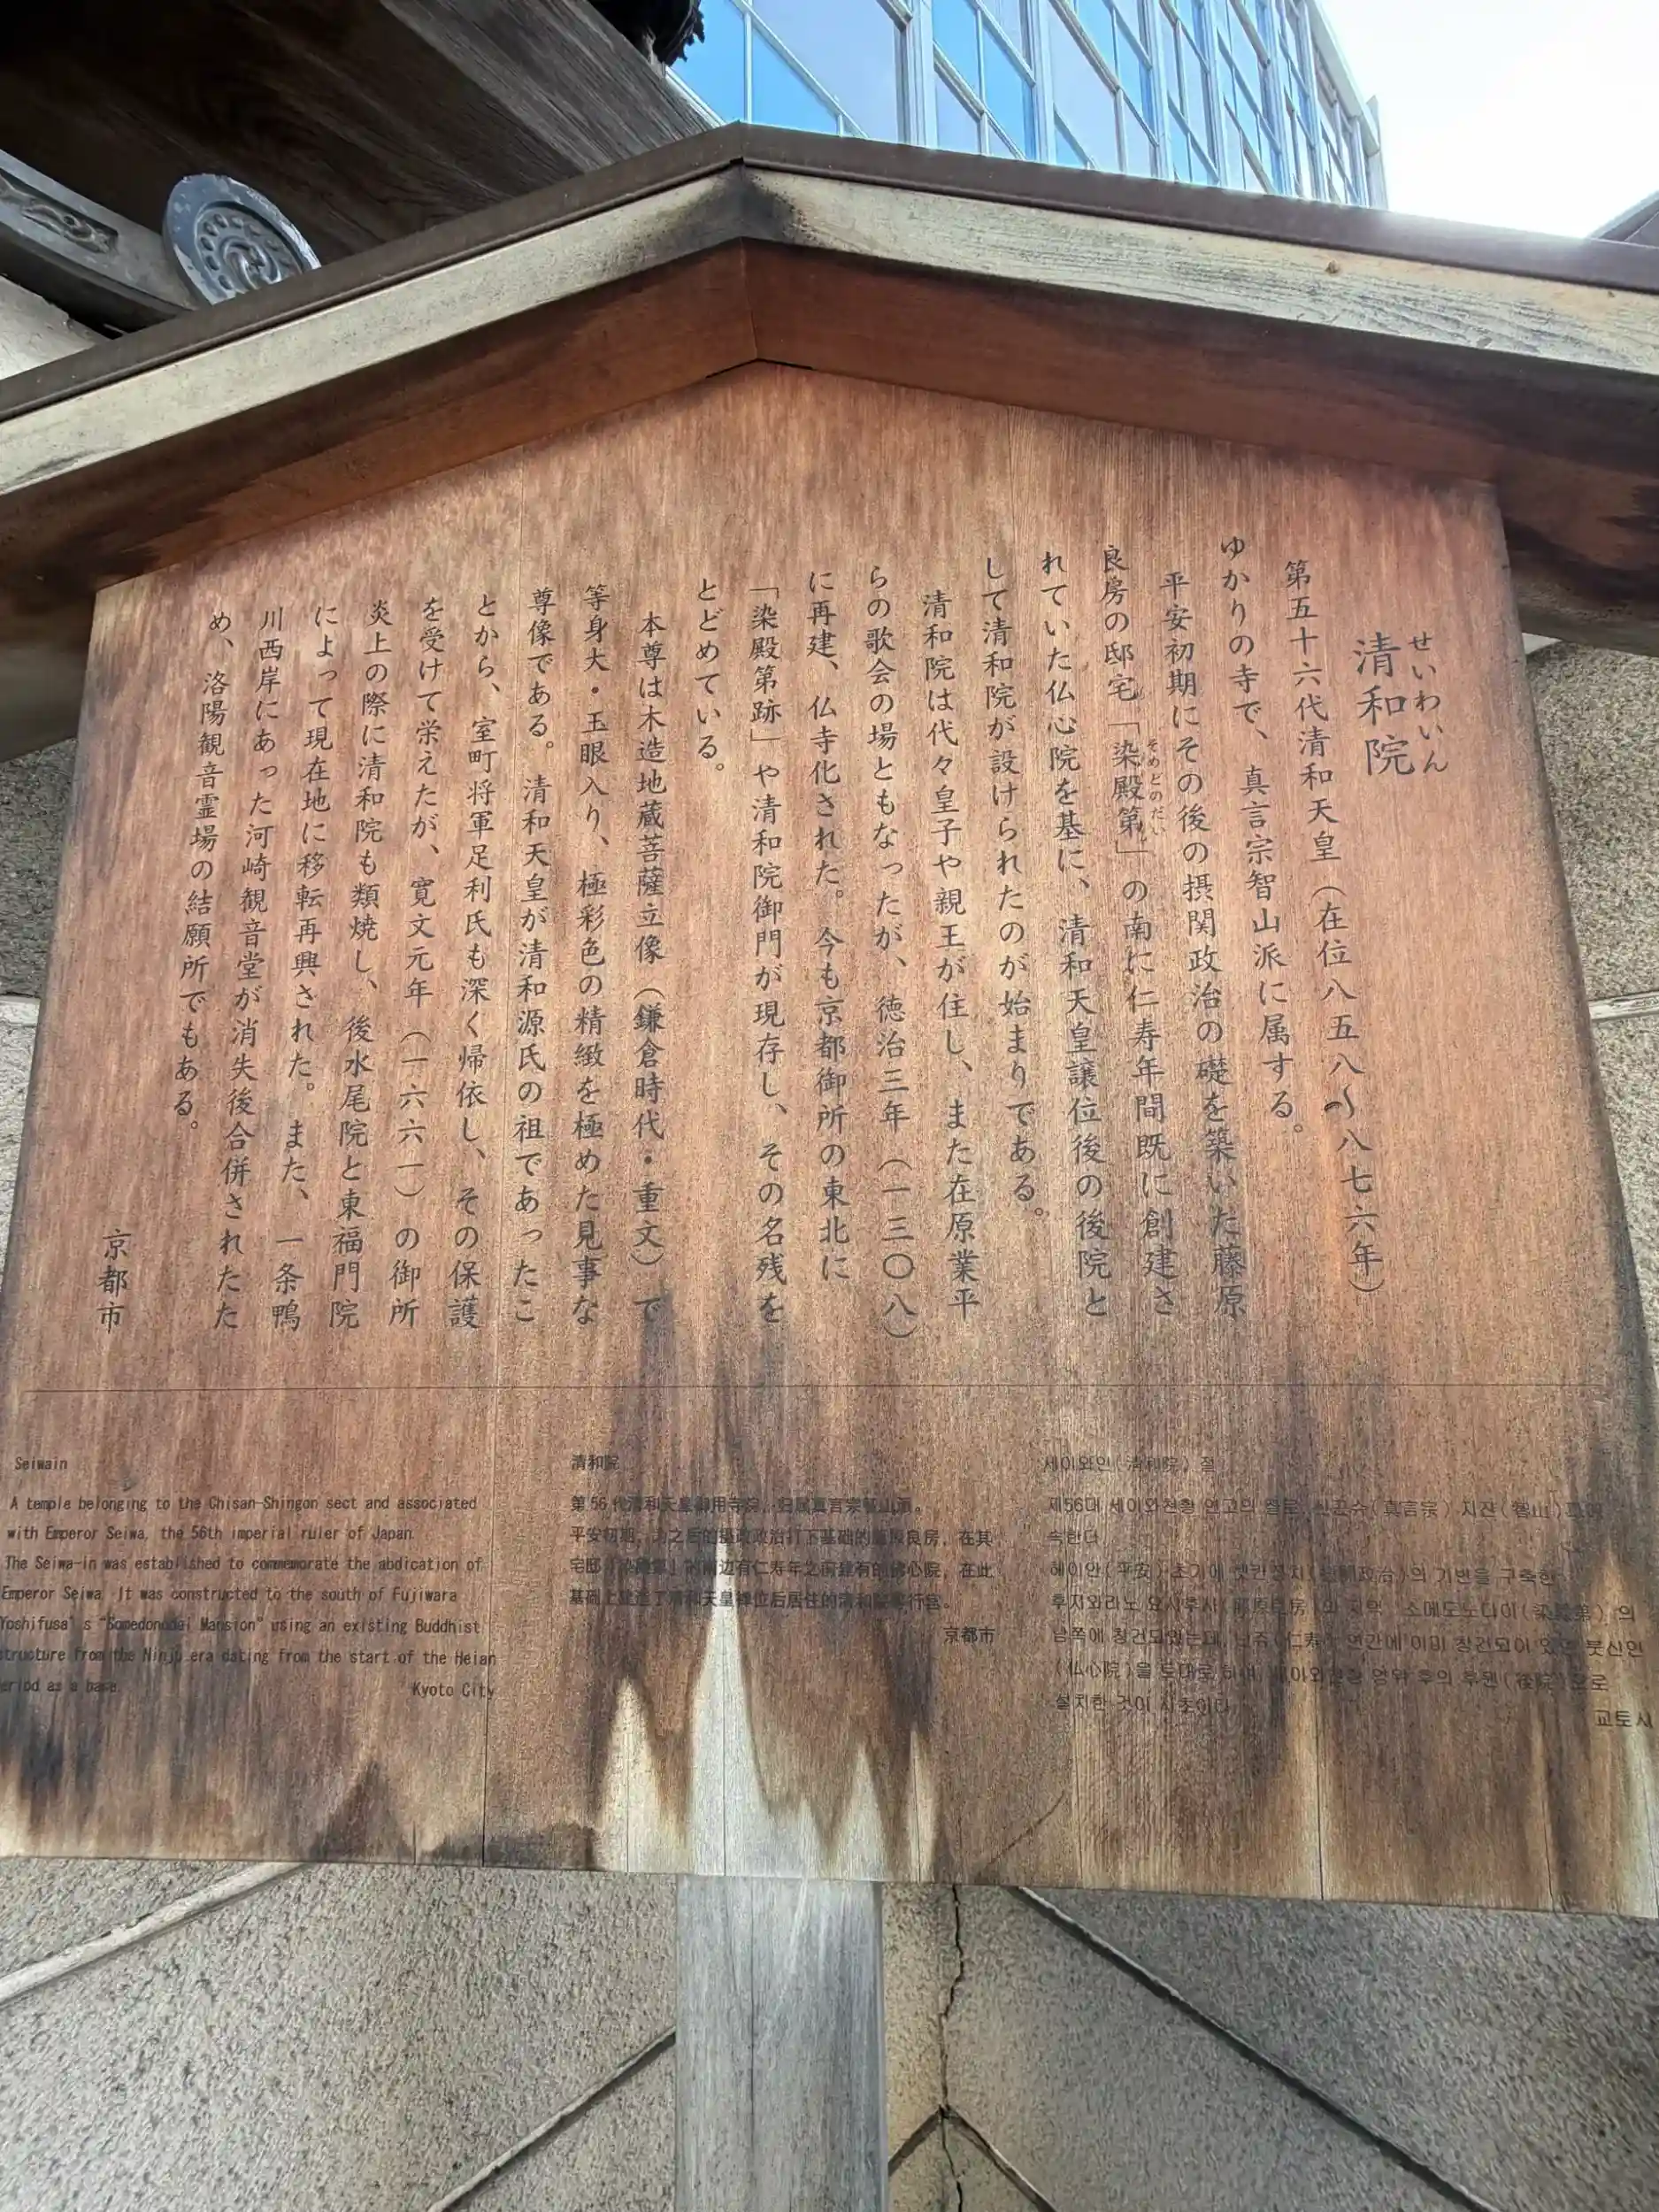 せいわいん
清和院
第五十六代清和天皇（在位八五八〜八七六年）
ゆかりの寺で、真言宗智山派に属する。
平安初期にその後の摂関政治の礎を築いた藤原
良房の邸宅「染殿第」の南に仁寿年間既に創建さ
そめどのだい
れていた仏心院を基に、清和天皇譲位後の後院と
して清和院が設けられたのが始まりである。
清和院は代々皇子や親王が住し、また在原業平
らの歌会の場ともなったが、徳治三年（一三〇八）
に再建、仏寺化された。今も京都御所の東北に
「染殿第跡」や清和院御門が現存し、その名残を
とどめている。
本尊は木造地蔵菩薩立像（鎌倉時代・重文）で
等身大・玉眼入り、極彩色の精緻を極めた見事な
尊像である。清和天皇が清和源氏の祖であったこ
とから、室町将軍足利氏も深く帰依し、その保護
を受けて栄えたが、寛文元年（一六六一）の御所
炎上の際に清和院も類焼し、後水尾院と東福門院
によって現在地に移転再興された。また、一条鴨
川西岸にあった河崎観音堂が消失後合併されたた
め、洛陽観音霊場の結願所でもある。
京都市
Seiwain
A temple belonging to the Chisan-Shingon sect and associated
with Emperor Seiwa, the 56th imperial ruler of Japan.
The Seiwa-in was established to commemorate the abdication of
Emperor Seiwa. It was constructed to the south of Fujiwara
Yoshifusa's "Somedonodai Mansion" using an existing Buddhist
structure from the Ninju era dating from the start of the Heian
period as a base.
Kyoto City
清和院
第56代清和天皇御用寺院，归属真言宗智山派。
平安初期，为之后的摄政政治打下基础的藤原良房，在其
宅邸「染殿第」的南边有仁寿年之前建有的佛心院，在此
基础上建造了清和天皇禅位后居住的清和院等行宫。
京都市
세이와인(清和院) 절
제56대 세이와천황 연고의 절로, 신곤슈(真言宗) 지잔(智山)파에
속한다
헤이안(平安) 초기에 셋칸정치(摂関政治)의 기반을 구축한
후지와라노 요시후사(藤原良房)의 저택 "소메도노다이(染殿第)"의
남쪽에 창건되었는데, 닌쥬(仁寿) 연간에 이미 창건되어 있던 붓신인
(仏心院)을 토대로 하여, 세이와천황 양위 후의 후원(後院)으로
설치한 것이 시초이다
교토시